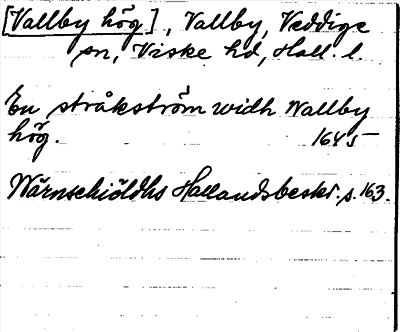 [Vallby hög], Vallby, Veddige
sn, Viske hd, Hall. l.
En stråkström widh Wallby
hög. 1645
Wärnschiöldhs Hallandsbeskr. s. 163.